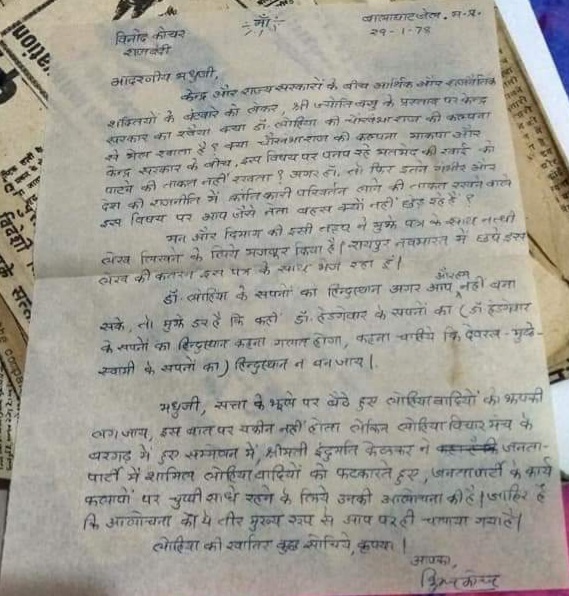 माँ
विनोद कोचर
राजबंदी
बालाघाट जेल, म.प्र.
29-1-78
आदरणीय मधुजी,
केन्द्र और राज्य सरकारों के बीच आर्थिक और राजनैतिक
शक्तियों के बंटवारे को लेकर, श्री ज्योति बसु के प्रस्ताव पर केन्द्र
सरकार का रवैया क्या डॉ. लोहिया की चौखंभा राज की कल्पना
से मेल खाता है? क्या चौखंभा राज की कल्पना माकपा और
केन्द्र सरकार के बीच, इस विषय पर पनप रहे मतभेद की खाई को
पाटने की ताकत नहीं रखता? अगर हाँ, तो फिर इतने गंभीर और
देश की राजनीति में क्रांतिकारी परिवर्तन लाने की ताकत रखने वाले
इस विषय पर आप जैसे नेता बहस क्यों नहीं छेड़ रहे हैं?
मन और दिमाग की इसी तड़प ने मुझे पत्र के साथ नत्थी
लेख लिखने के लिये मजबूर किया है। रायपुर नवभारत में छपे इस
लेख की कतरन इस पत्र के साथ भेज रहा हूँ।
डॉ. लोहिया के सपनों का हिन्दुस्थान अगर आप और हम नहीं बना
सके, तो मुझे डर है कि कहीं डॉ. हेडगेवार के सपनों का (डॉ हेडगेवार
के सपनों का हिन्दुस्थान कहना गलत होगा, कहना चाहिये कि देवरस-मुदे-
स्वामी के सपनों का) हिन्दुस्थान न बन जाय।
मधुजी, सत्ता के झूले पर बैठे हुए लोहियावादियों को झपकी
लग जाय, इस बात पर यकीन नहीं होता लेकिन लोहिया विचार मंच के
बरगढ़ में हुए सम्मेलन में, श्रीमती इंदुमति केलकर ने जनता-
पार्टी में शामिल लोहियावादियों को फटकारते हुए, जनतापार्टी के कार्य
कलापों पर चुप्पी साधे रहने के लिये उनकी आलोचना की है। जाहिर है
कि आलोचना का ये तीर मुख्य रूप से आप पर ही चलाया गया है।
लोहिया की खातिर कुछ सोचिये, कृपया।
आपका,
विनोद कोचर